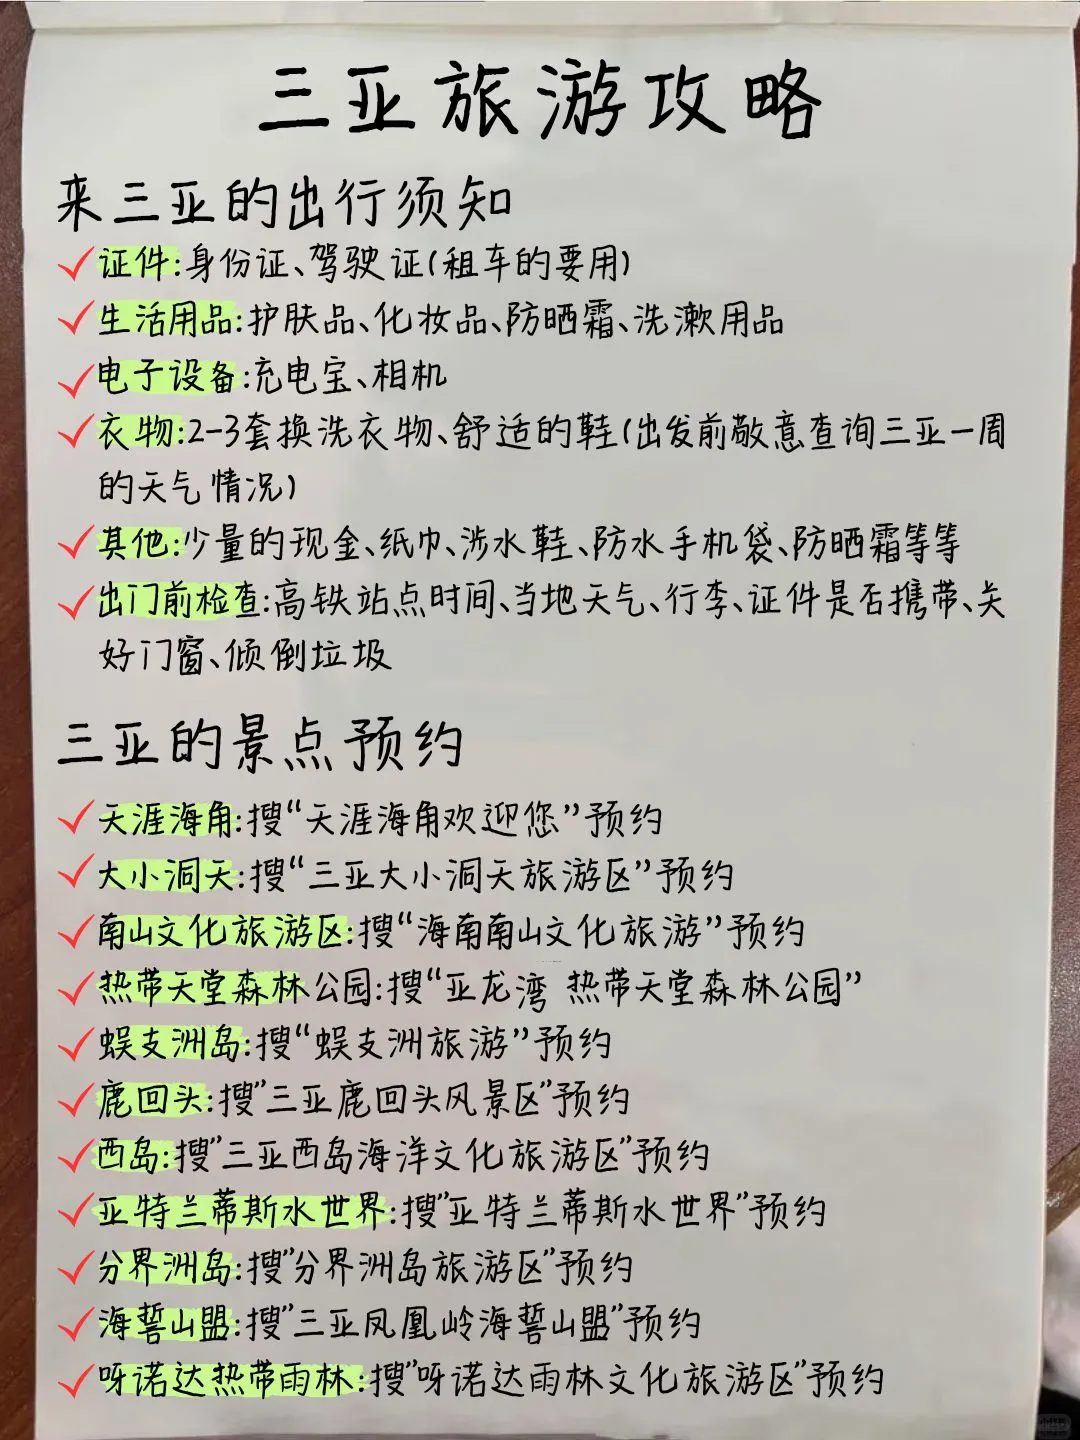 三亚旅游攻略
来三亚的出行须知
证件:身份证、驾驶证(租车的要用)
生活用品:护肤品、化妆品、防晒霜、洗漱用品
电子设备:充电宝、相机
衣物:2-3套换洗衣物、舒适的鞋(出发前敬意查询三亚一周
的天气情况)
其他:少量的现金、纸巾、涉水鞋、防水手机袋、防晒霜等等
出门前检查:高铁站点时间、当地天气、行李、证件是否携带、关
好门窗、倾倒垃圾
三亚的景点预约
天涯海角:搜“天涯海角欢迎您”预约
大小洞天:搜“三亚大小洞天旅游区”预约
南山文化旅游区:搜“海南南山文化旅游”预约
热带天堂森林公园:搜“亚龙湾 热带天堂森林公园”
蜈支洲岛:搜“蜈支洲旅游”预约
鹿回头:搜”三亚鹿回头风景区”预约
西岛:搜”三亚西岛海洋文化旅游区”预约
亚特兰蒂斯水世界:搜”亚特兰蒂斯水世界”预约
分界洲岛:搜”分界洲岛旅游区”预约
海誓山盟:搜”三亚凤凰岭海誓山盟”预约
呀诺达热带雨林:搜”呀诺达雨林文化旅游区”预约